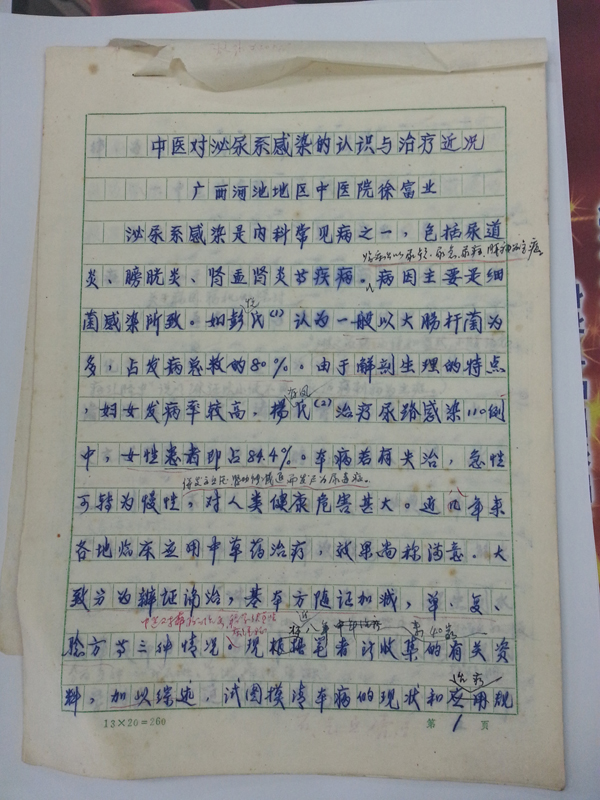 中医对泌尿系感染的认识与治疗近况
广西河池地区中医院徐富业
泌尿系感染是内科常见病之一，包括尿道
炎、膀胱炎、肾盂肾炎等疾病。病因主要是细
菌感染所致。如彭氏⁽¹⁾认为一般以大肠杆菌为
多，占发病系数的80%。由于解剖生理的特点
，妇女发病率较高。杨氏⁽²⁾治疗尿路感染110例
中，女性患者即占84.4%。本病若有失治，急性
可转为慢性，对人类健康危害甚大。近几年来
各地临床应用中草药治疗，效果尚称满意。大
致分为辨证论治，基本方随证加减，单、复、
验方等三种情况。现根据笔者计收集的有关资
料，加以综述，试图摸清本病的现状和应用规
13×20=260
第1页